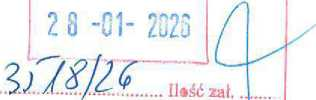 28 -01- 2026
3578/26 Ilość zał.